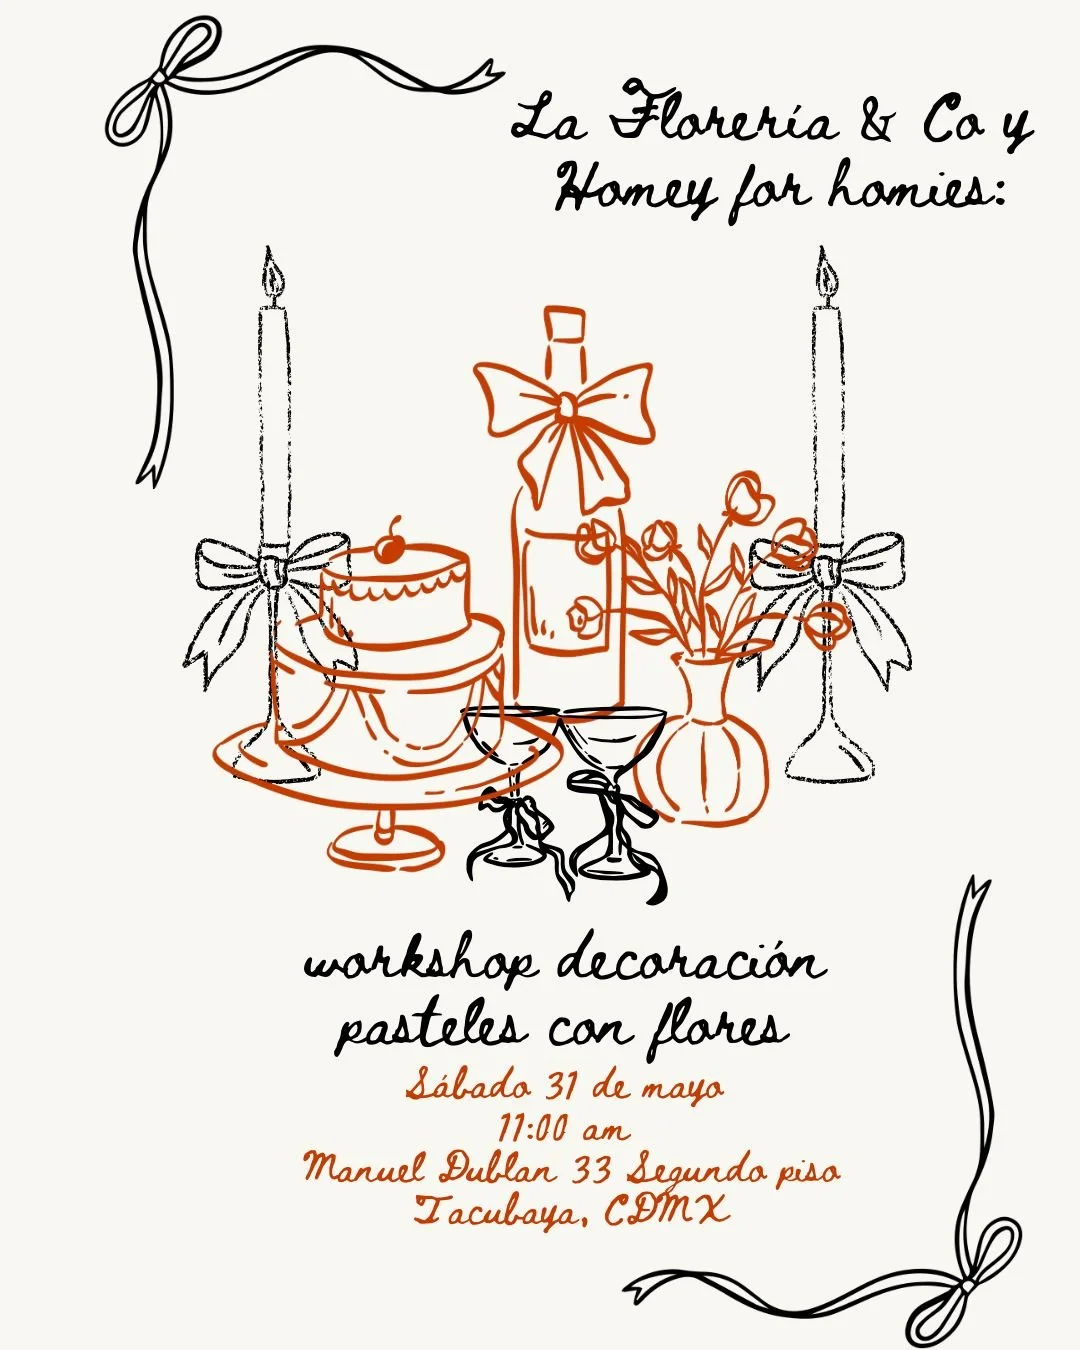 La Florería & Co y
Homey for homies:
workshop decoración
pasteles con flores
Sábado 31 de mayo
11:00 am
Manuel Dublan 33 Segundo piso
Tacubaya, CDMX